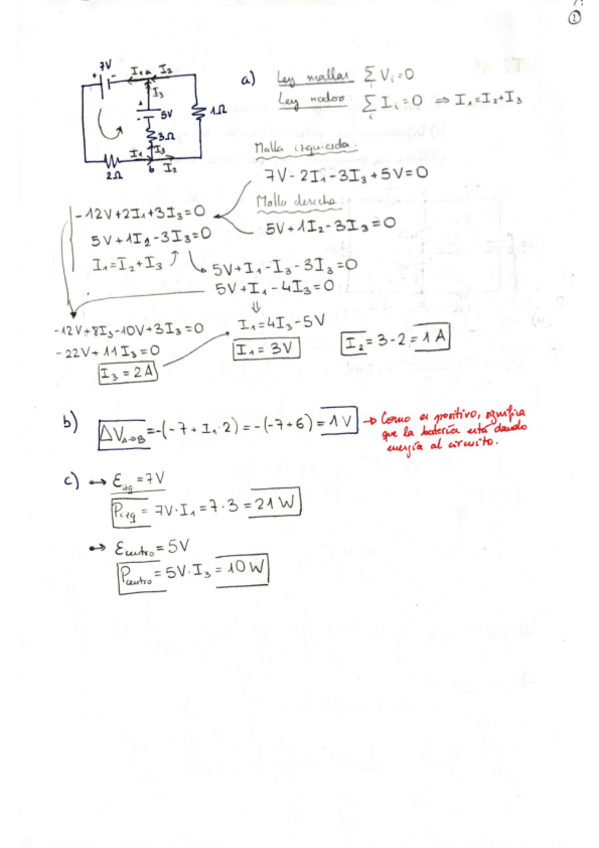 ②
7V
+ -
I₁ a I₂
I₃
+
- 5V
1Ω
3Ω
I₁ I₃
2Ω
b I₂
a) Ley mallas Σ Vᵢ=0
i
Ley nodos: Σ Iᵢ=0 ⇒ I₁=I₂+I₃
i
Malla izquierda:
7V-2I₁-3I₃+5V=0
Malla derecha:
5V+1I₂-3I₃=0
-12V+2I₁+3I₃=0
5V+1I₂-3I₃=0
I₁=I₂+I₃
5V+I₁-I₃-3I₃=0
5V+I₁-4I₃=0
⇓
-12V+8I₃-10V+3I₃=0
-22V+11I₃=0
I₃=2A
I₁=4I₃-5V
I₁=3V
I₂=3-2=1A
b) ΔV_A→B=-(-7+I₁·2)=-(-7+6)=1V → Como es positivo, significa
que la batería está dando
energía al circuito.
c) → ε_izq=7V
P_izq=7V·I₁=7·3=21W
→ ε_centro=5V
P_centro=5V·I₃=10W